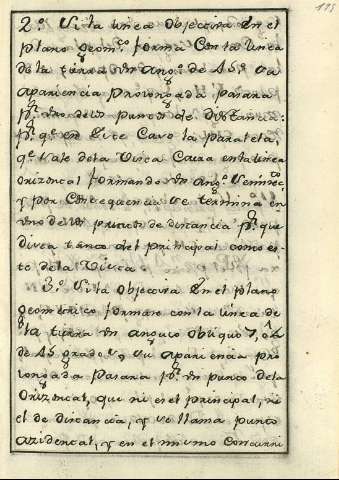 2.º Si la linea objectiva En el
plano geom.co forma Con la linea
de la tierra un ang.o de 45.º su
apariencia prolongada pasara
p.r uno de los puntos de Distancia:
p.r q.e en Este Caso la paralela,
q.e sale de la Vista Caera en la linea
orizontal formando un ang.o Semirec.to
y por Consequencia se termina en
uno de los puntos de distancia p.r que
dista tanto del principal como es-
to de la Vista.
3.º Si la objectiva En el plano
geometrico formare con la linea de
la tierra un angulo obliquo
de 45 grados su apariencia pro
longada pasara p.r un punto de la
Orizontal, que ni es el principal, ni
el de distancia, y se llama punto
accidental, y en el mismo Concurri